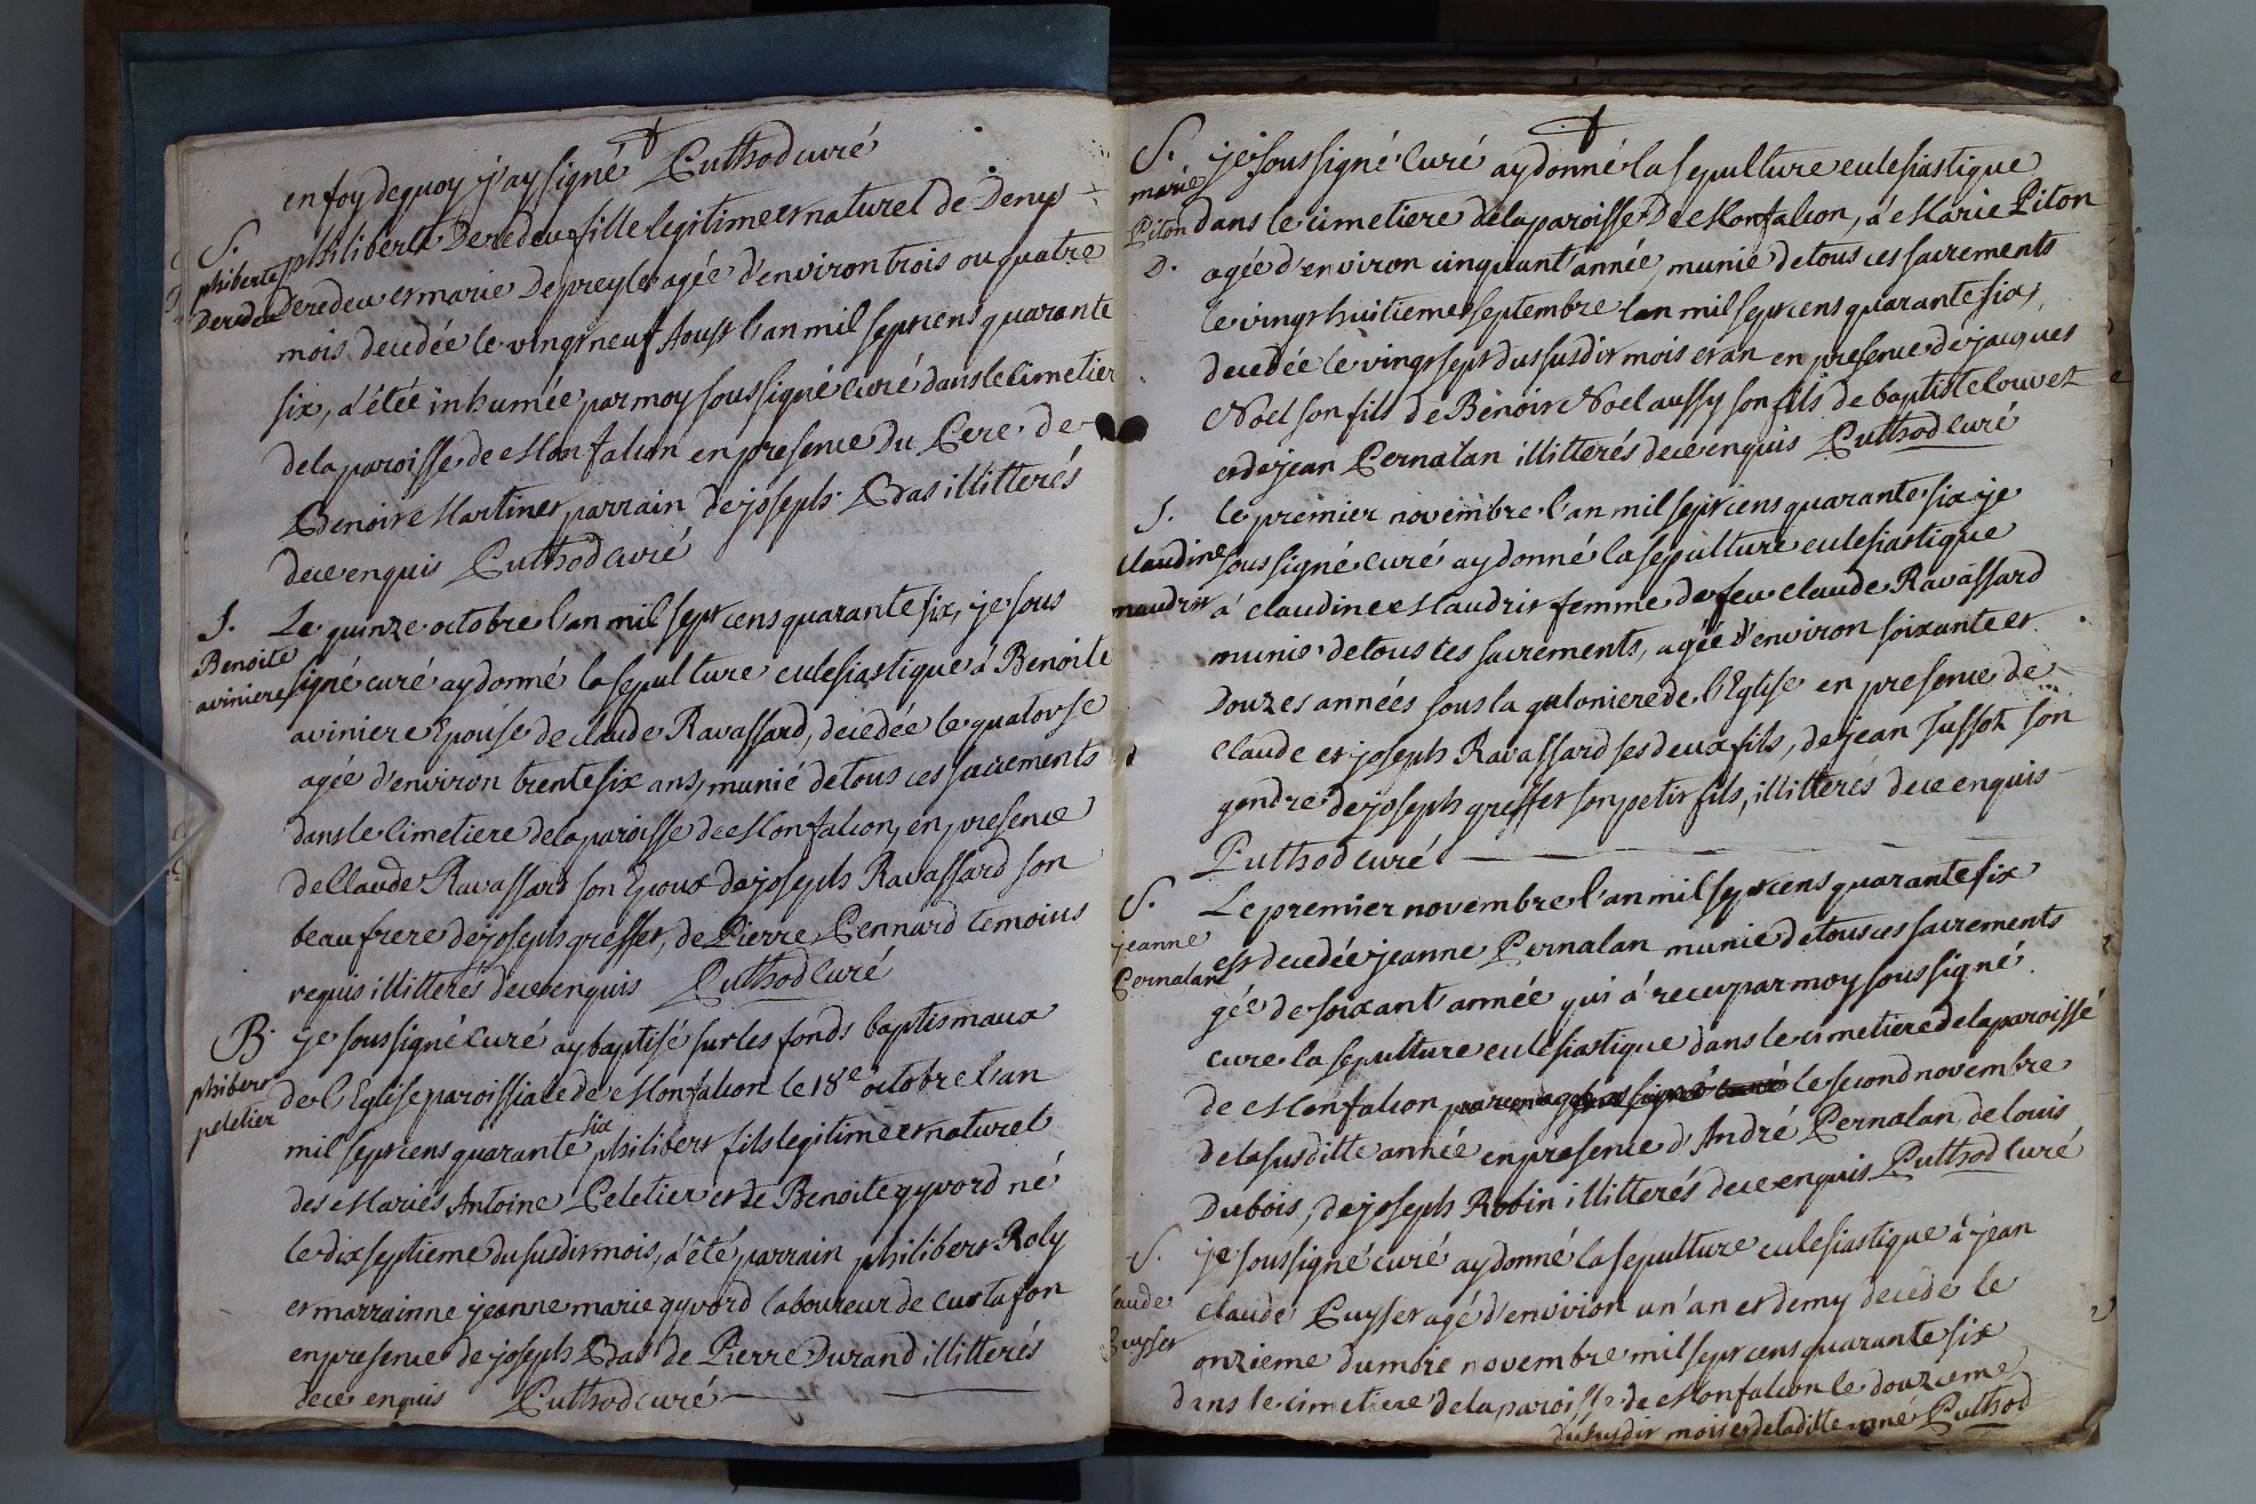 en foy de quoy j'ay signé Puthod curé
S. philiberte Deredeu fille legitime et naturel de Denys
phiberte Deredeu Deredeu et marie Depreyle agée d'environ trois ou quatre
mois decedée le vingt neuf Aoust l'an mil sept cens quarante
six, a étée inhumée par moy soussigné curé dans le Cimetier
de la paroisse de Monfalcon en presence du Pere de
Benoit Martinet parrain de joseph Bras illitterés
de ce enquis Puthod curé
S. Le quinze octobre l'an mil sept cens quarante six, je sous
Benoite aviniere signé curé ay donné la sepulture eclesiastique á Benoite
aviniere Epouse de claude Ravassard, decedée le quatorse
agée d'environ trente six ans, munie de tous ces sacrements
dans le Cimetiere de la paroisse de Monfalcon, en presence
de Claude Ravassard son Epoux de joseph Ravassard son
beaufrere de joseph gresset, de Pierre Pennard temoins
requis illitterés de ce enquis Puthod Curé
B. je soussigné Curé ay baptisé sur les fonds baptismaux
phibert peletier de l'Eglise paroissiale de Monfalcon le 18e octobre l'an
mil sept cens quarante six philibert fils legitime et naturel
des Mariés Antoine Peletier et de Benoite gyvord né
le dix septieme du susdit mois, a été parrain philibert Roly
et marrainne jeanne marie gyvord laboureur de Curtafon
en presence de joseph Bras de Pierre Durand illitterés
de ce enquis Puthod curé
S. je soussigné Curé ay donné la sepulture eclesiastique
marie Piton dans le cimetiere de la paroisse De Monfalcon, á Marie Piton
D. agée d'environ cinquant' année, munie de tous ces sacrements
le vingt huitieme septembre l'an mil sept cens quarante six,
decedée le vingt sept dus susdit mois et an en presence de jacques
Noel son fils de Benoit Noel aussy son fils de baptiste louvet
et de jean Pernalan illitterés de ce enquis Puthod Curé
S. le premier novembre l'an mil sept cens quarante six je
claudine soussigné curé ay donné la sepulture eclesiastique
maudrit á claudine Maudrit femme de feu claude Ravassard
munie de tous ces sacrements, agée d'environ soixante et
Douzes années sous la galoniere de l'Eglise en presence de
Claude et joseph Ravassard ses deux fils, de jean Jussot son
gendre de joseph gresset son petit fils, illitterés de ce enquis
Puthod curé
S. Le premier novembre l'an mil sept cens quarante six
jeanne Pernalan est decedée jeanne Pernalan munie de tous ces sacrements
gée de soixant' année qui á recu par moy soussigné
cure la sepulture eclesiastique dans le cimetiere de la paroisse
de Monfalcon le second novembre
de la susditte année en presence d'André Pernalan, de louis
Dubois, de joseph Robin illitterés de ce enquis Puthod Curé
S. je soussigné curé ay donné la sepulture eclesiastique á jean
laude Puysset claude Puysset agé d'envirion un'an et demy decede le
onzieme du mois novembre mil sept cens quarante six
dans le cimetiere de la paroisse de Monfalcon le douzieme
du susdit mois et de la ditte anné Puthod